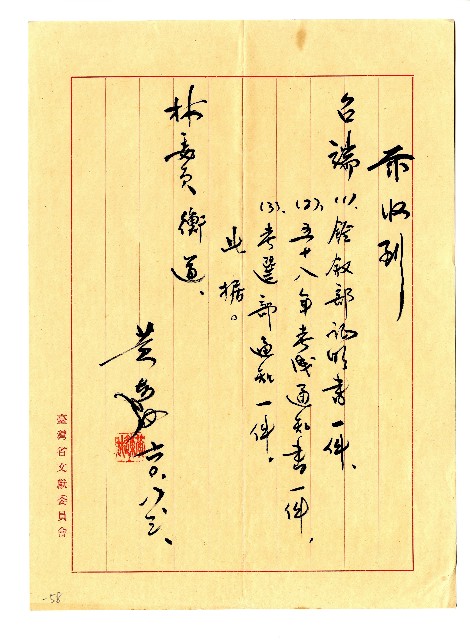 茲收到
台端(1)、銓敘部証明書一件、
(2)、五十八年考成通知書一件，
(3)、考選部通知一件。
此據。
林委員衡道、
黃
臺灣省文獻委員會
-58